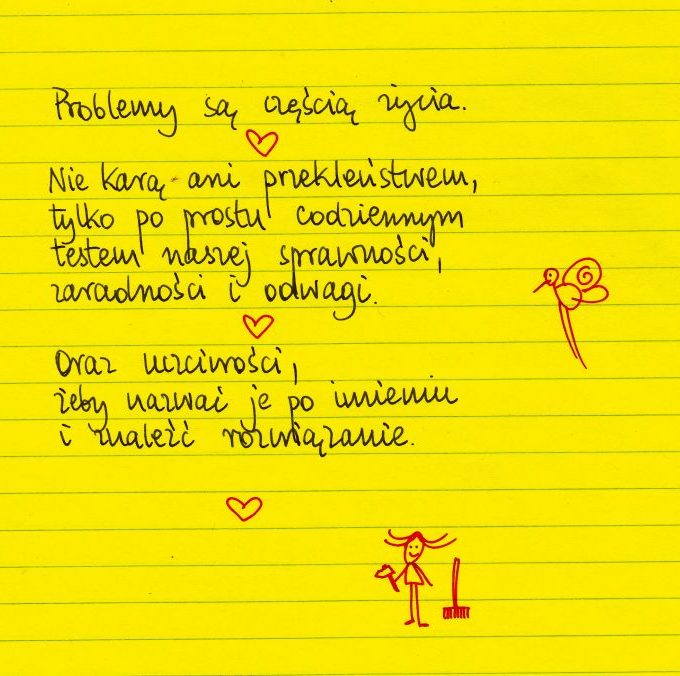 Problemy są częścią życia.
Nie karą ani przekleństwem,
tylko po prostu codziennym
testem naszej sprawności,
zaradności i odwagi.
Oraz uczciwości,
żeby nazwać je po imieniu
i znaleźć rozwiązanie.